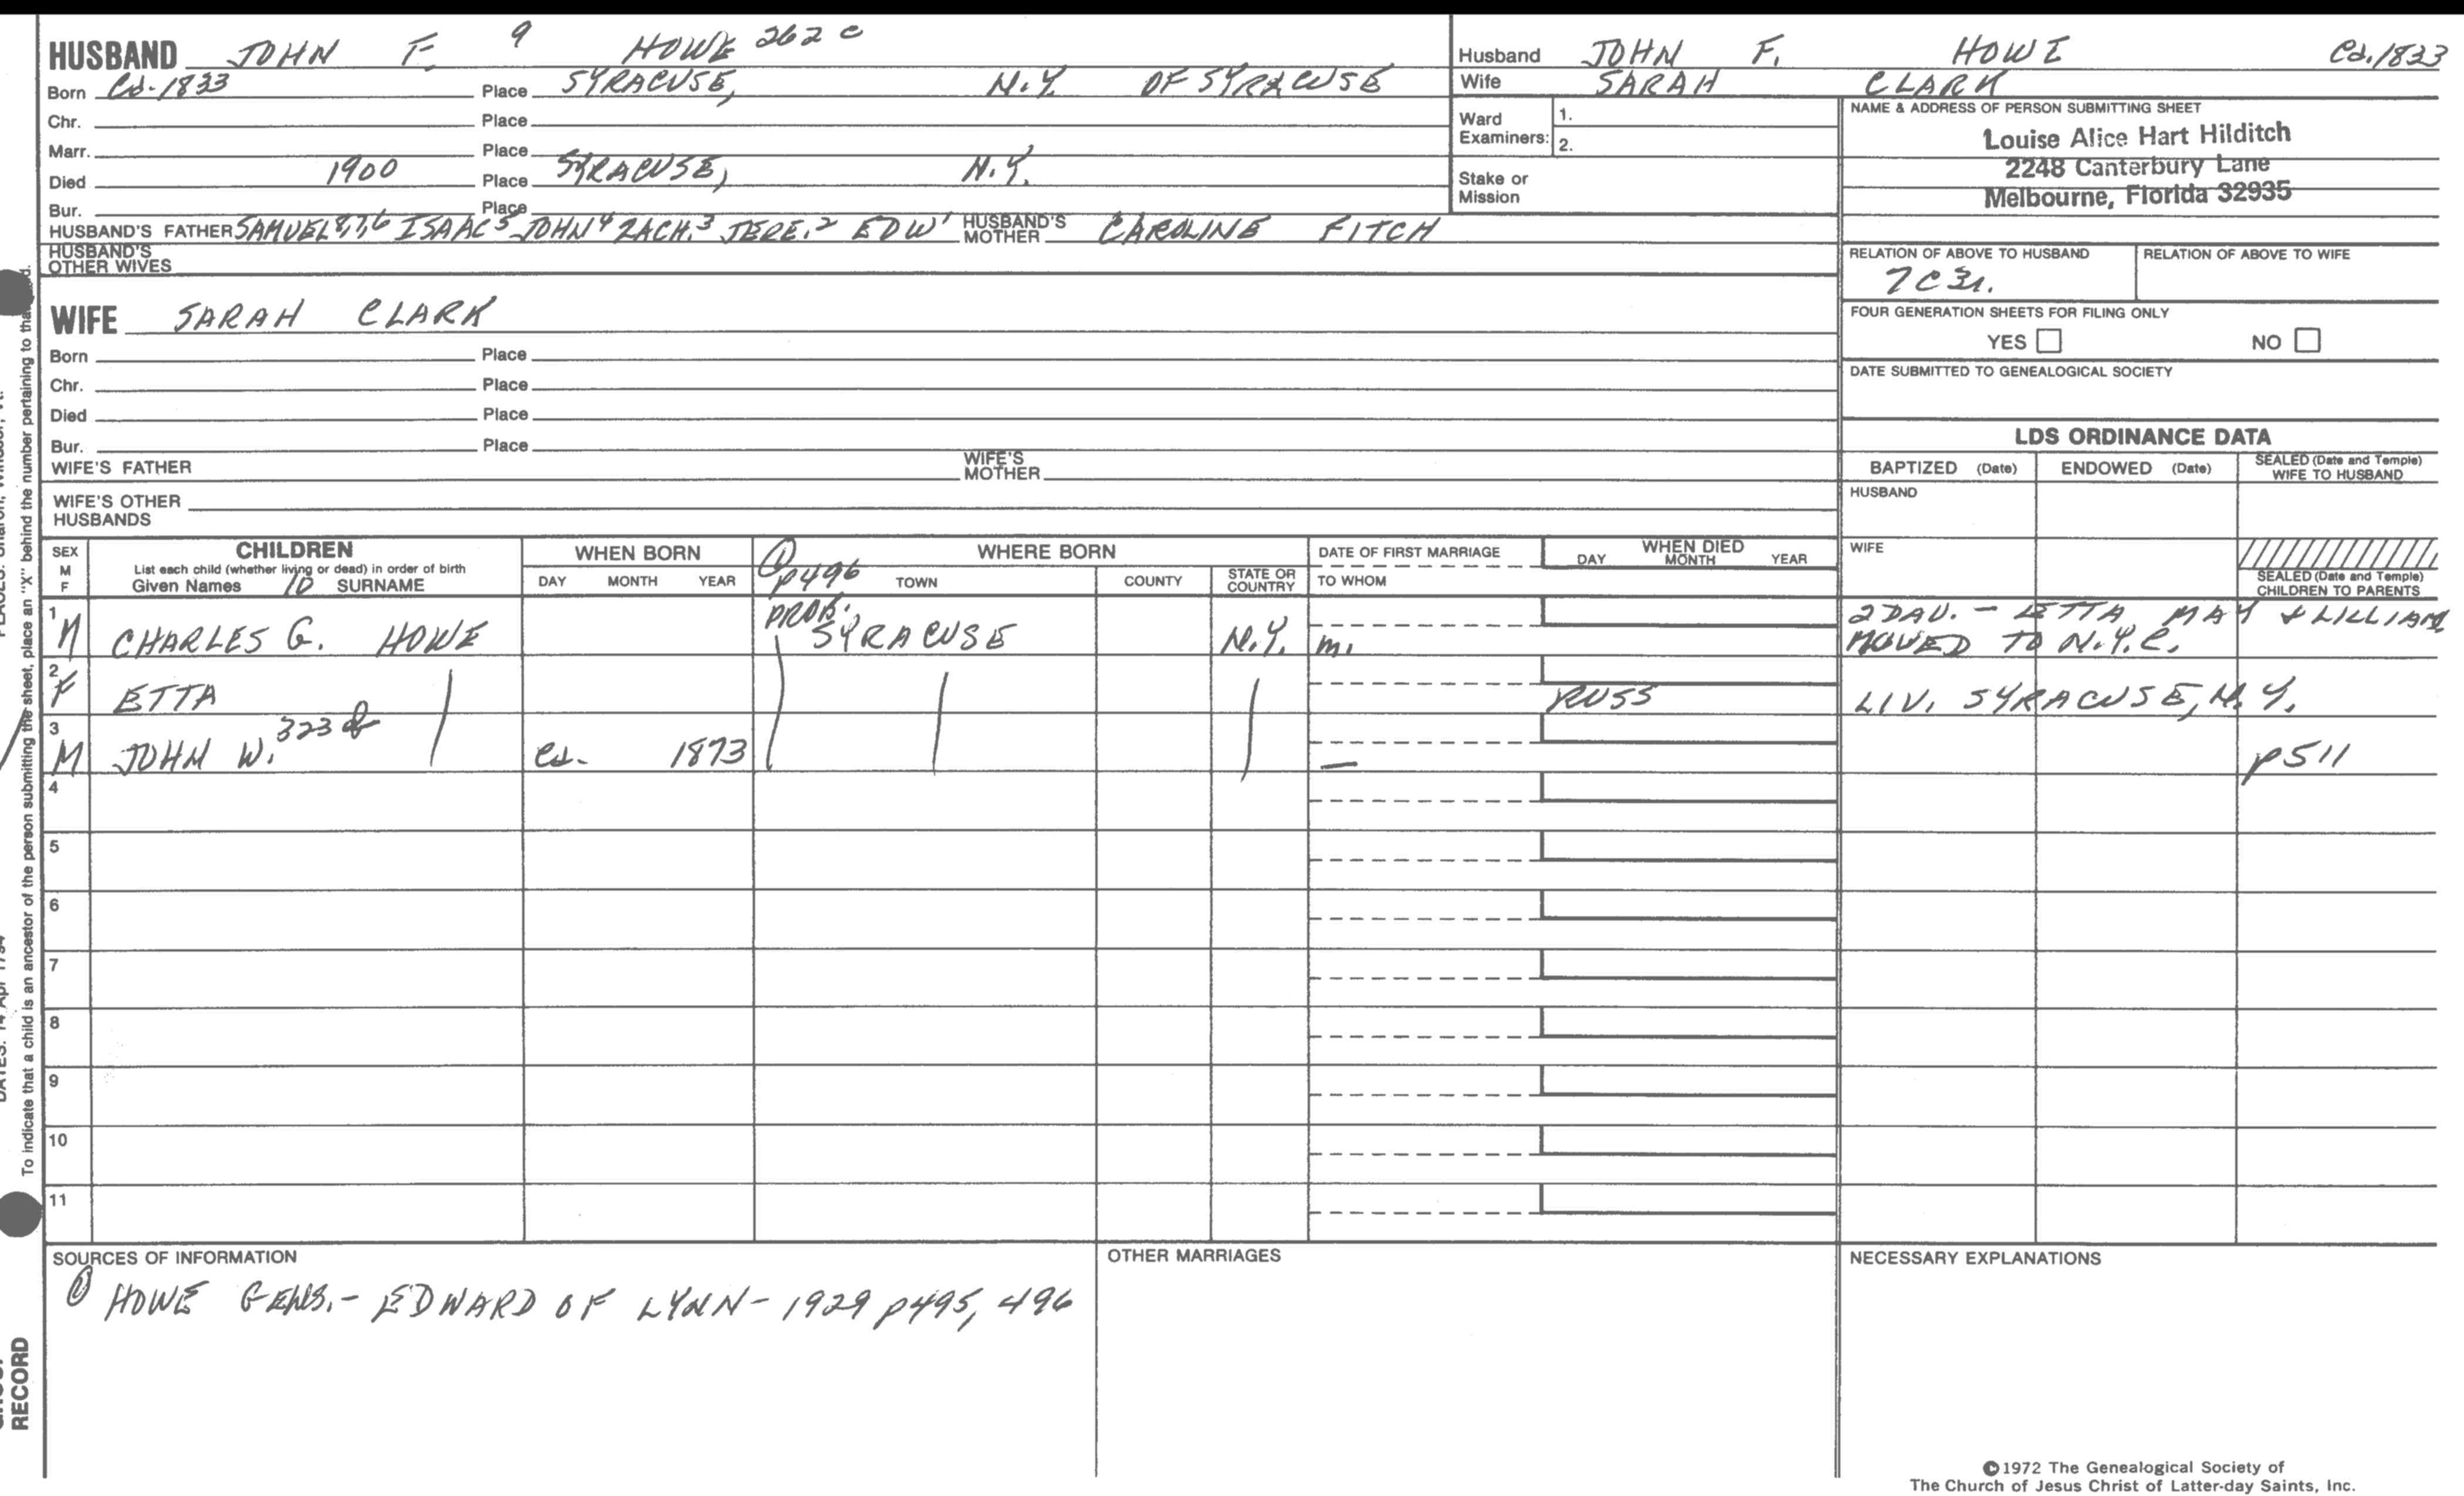 HUSBAND JOHN F. 9 HOWE 262 c
Born Ca. 1833 Place SYRACUSE, N.Y. OF SYRACUSE
Chr. Place
Marr. Place
Died 1900 Place SYRACUSE, N.Y.
Bur. Place
HUSBAND'S FATHER SAMUEL 8,7,6 ISAAC 5 JOHN 4 ZACH. 3 JERE. 2 EDW 1 HUSBAND'S MOTHER CAROLINE FITCH
HUSBAND'S OTHER WIVES
WIFE SARAH CLARK
Born Place
Chr. Place
Died Place
Bur. Place
WIFE'S FATHER WIFE'S MOTHER
WIFE'S OTHER HUSBANDS
Husband JOHN F. HOWE Ca. 1833
Wife SARAH CLARK
Ward Examiners: 1. 2.
Stake or Mission
NAME & ADDRESS OF PERSON SUBMITTING SHEET
Louise Alice Hart Hilditch
2248 Canterbury Lane
Melbourne, Florida 32935
RELATION OF ABOVE TO HUSBAND RELATION OF ABOVE TO WIFE
7C3r.
FOUR GENERATION SHEETS FOR FILING ONLY
YES NO
DATE SUBMITTED TO GENEALOGICAL SOCIETY
LDS ORDINANCE DATA
BAPTIZED (Date) ENDOWED (Date) SEALED (Date and Temple) WIFE TO HUSBAND
HUSBAND
WIFE
SEALED (Date and Temple) CHILDREN TO PARENTS
SEX M F
CHILDREN
List each child (whether living or dead) in order of birth
Given Names 10 SURNAME
WHEN BORN
DAY MONTH YEAR
① p496
WHERE BORN
TOWN COUNTY STATE OR COUNTRY
DATE OF FIRST MARRIAGE
TO WHOM
WHEN DIED
DAY MONTH YEAR
1 M CHARLES G. HOWE PROB. SYRACUSE N.Y. m. 2 DAU. - ETTA MAY & LILLIAN
MOVED TO N.Y.C.
2 F ETTA RUSS LIV. SYRACUSE, N.Y.
3 M JOHN W. 323 Ca. 1873 — p511
4
5
6
7
8
9
10
11
SOURCES OF INFORMATION
① HOWE GENS. - EDWARD OF LYNN - 1929 p495, 496
OTHER MARRIAGES
NECESSARY EXPLANATIONS
©1972 The Genealogical Society of
The Church of Jesus Christ of Latter-day Saints, Inc.
To indicate that a child is an ancestor of the person submitting the sheet, place an "X" behind the number pertaining to that
DATES: 14 Apr 1794
RECORD